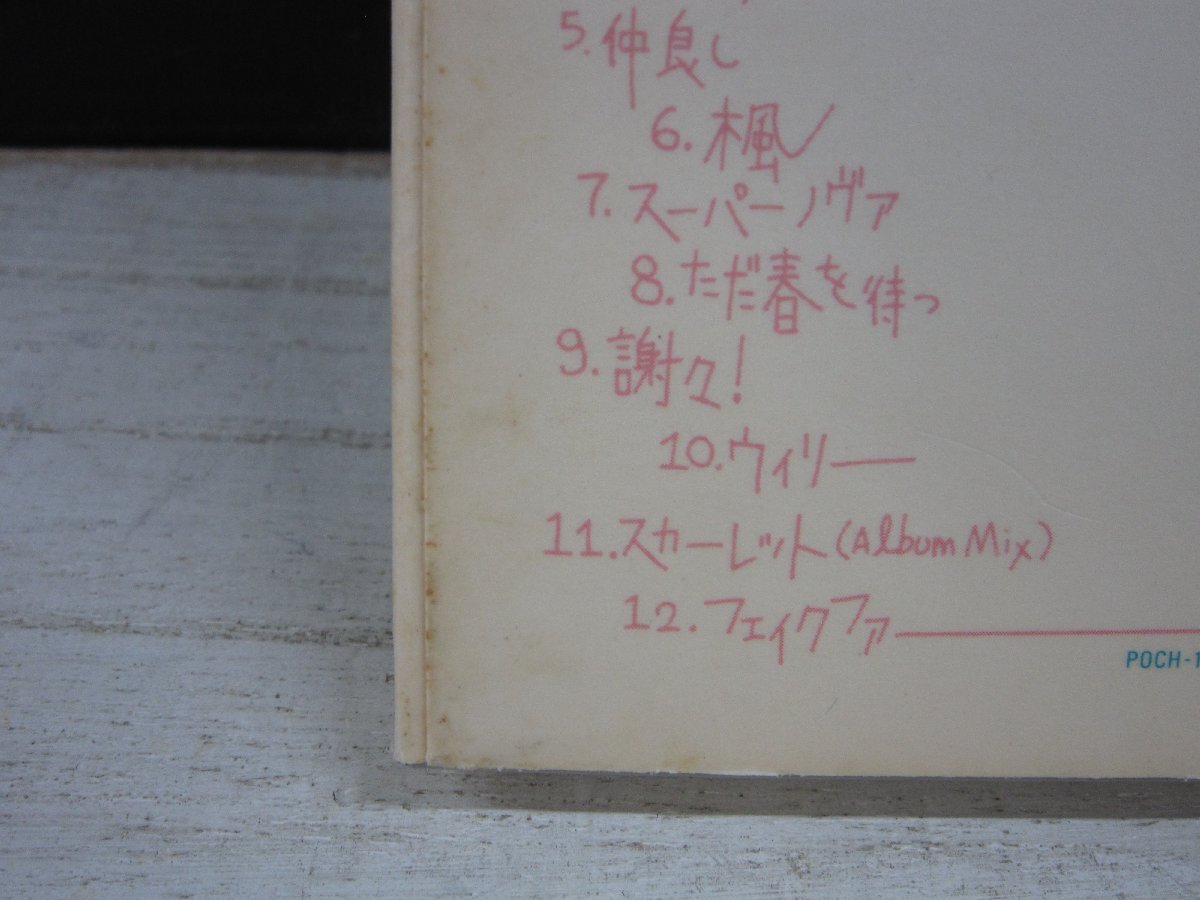 5. 仲良し
6. 楓
7. スーパーノヴァ
8. ただ春を待つ
9. 謝々!
10. ウィリー
11. スカーレット(Album Mix)
12. フェイクファー
POCH-1